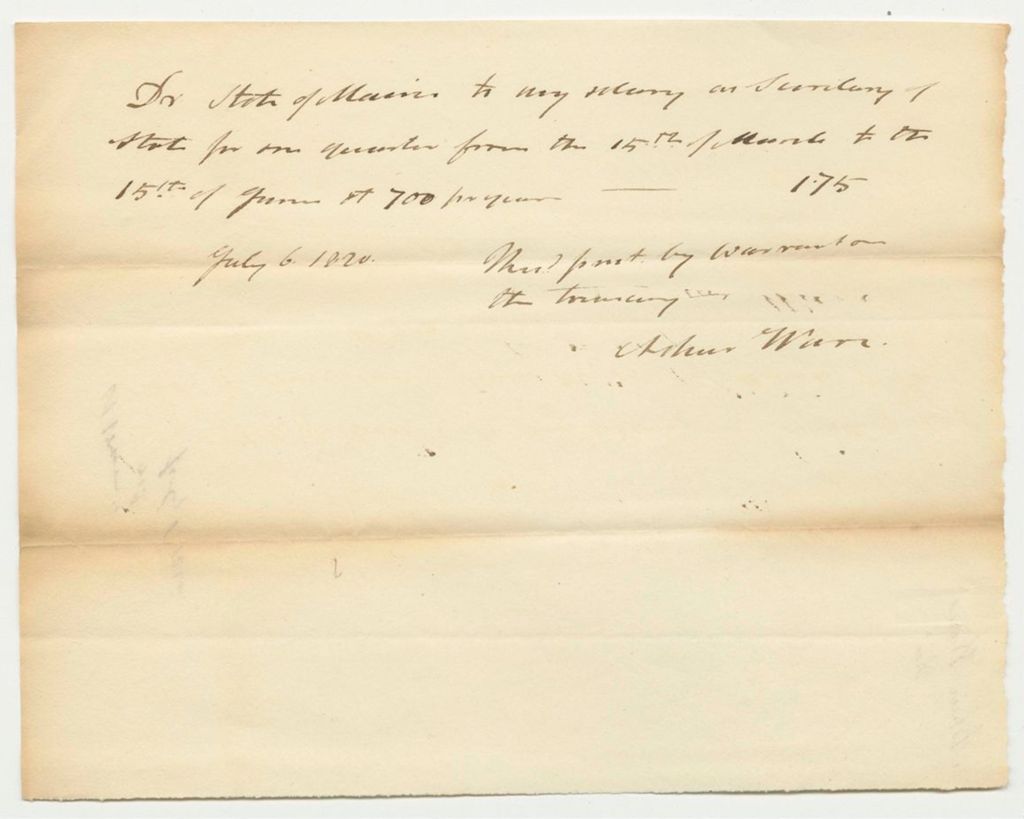 Dr State of Maine to my salary as Secretary of
State for one quarter from the 15th of March to the
15th of June at 700 pr year — 175
July 6 1820. Recd paymt by warrant on
the treasury
Ashur Ware.